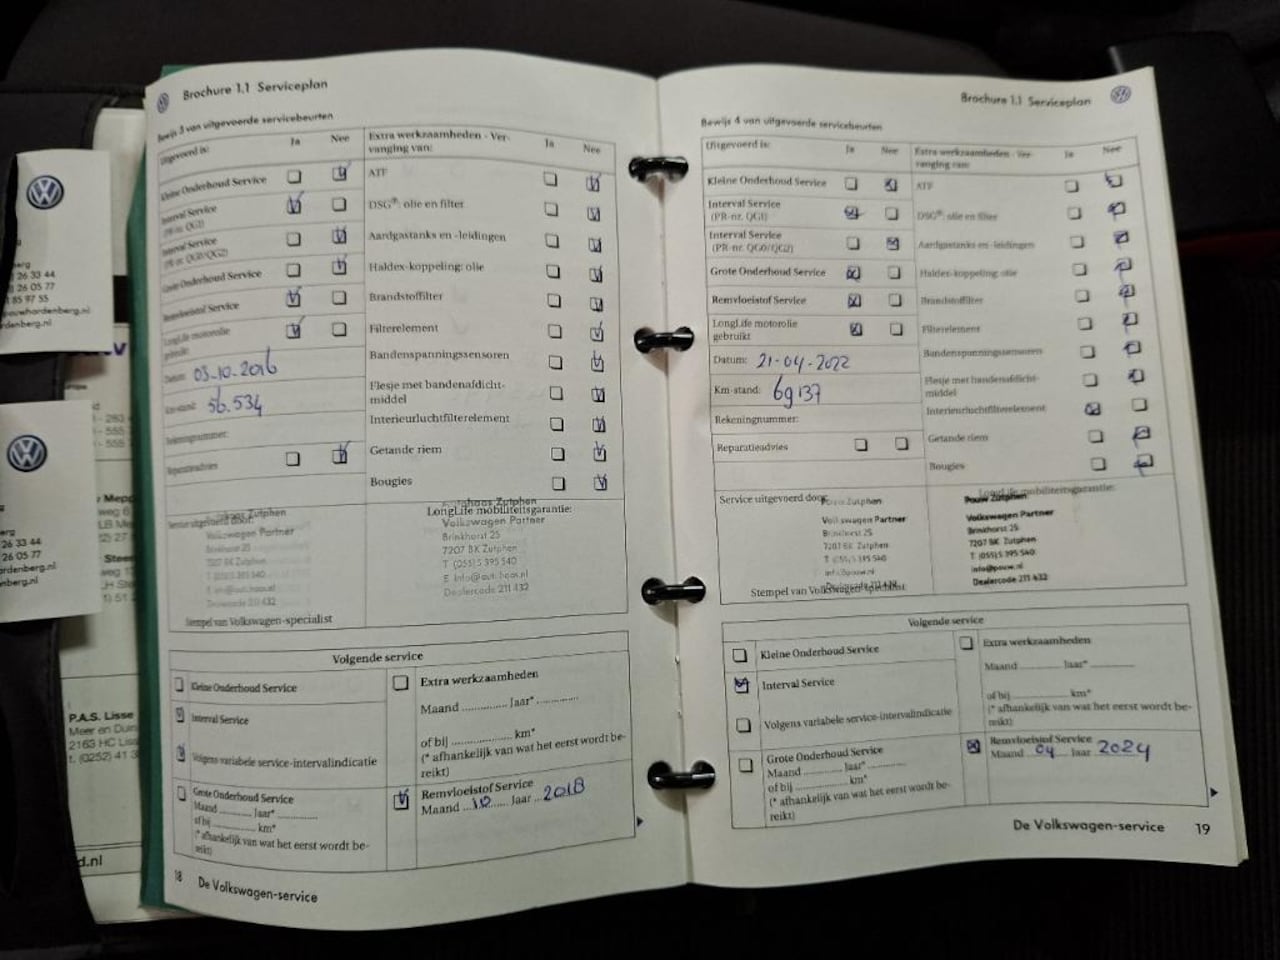 Brochure 1.1 Serviceplan
Bewijs 3 van uitgevoerde servicebeurten
Uitgevoerd is:
Ja
Nee
Kleine Onderhoud Service
Interval Service
(PR-nr. QG1)
Interval Service
(PR-nr. QG0/QG2)
Grote Onderhoud Service
Remvloeistof Service
LongLife motorolie
gebruikt
Datum: 03-10-2016
Km-stand: 56.534
Rekeningnummer:
Reparatieadvies
Extra werkzaamheden - Ver-
vanging van:
Ja
Nee
ATF
DSG®: olie en filter
Aardgastanks en -leidingen
Haldex-koppeling: olie
Brandstoffilter
Filterelement
Bandenspanningssensoren
Flesje met bandenafdicht-
middel
Interieurluchtfilterelement
Getande riem
Bougies
Service uitgevoerd door:
Zutphen
Volkswagen Partner
Brinkhorst 25
7207 BK Zutphen
T (055) 5 395 540
Dealercode 211 432
Stempel van Volkswagen-specialist
Autohaas Zutphen
LongLife mobiliteitsgarantie:
Volkswagen Partner
Brinkhorst 25
7207 BK Zutphen
T (055) 5 395 540
Dealercode 211 432
Volgende service
Kleine Onderhoud Service
Interval Service
Volgens variabele service-intervalindicatie
Grote Onderhoud Service
Maand ............ Jaar* ............
of bij ............ km*
(* afhankelijk van wat het eerst wordt be-
reikt)
Extra werkzaamheden
Maand ............ Jaar* ............
of bij ............ km*
(* afhankelijk van wat het eerst wordt be-
reikt)
Remvloeistof Service
Maand ... 10 ... Jaar ... 2018
18 De Volkswagen-service
Brochure 1.1 Serviceplan
Bewijs 4 van uitgevoerde servicebeurten
Uitgevoerd is:
Ja
Nee
Kleine Onderhoud Service
Interval Service
(PR-nr. QG1)
Interval Service
(PR-nr. QG0/QG2)
Grote Onderhoud Service
Remvloeistof Service
LongLife motorolie
gebruikt
Datum: 21-04-2022
Km-stand: 69137
Rekeningnummer:
Reparatieadvies
Extra werkzaamheden - Ver-
vanging van:
Ja
Nee
ATF
DSG®: olie en filter
Aardgastanks en -leidingen
Haldex-koppeling: olie
Brandstoffilter
Filterelement
Bandenspanningssensoren
Flesje met bandenafdicht-
middel
Interieurluchtfilterelement
Getande riem
Bougies
Service uitgevoerd door:
Pouw Zutphen
Volkswagen Partner
Brinkhorst 25
7207 BK Zutphen
T (055) 5 395 540
info@pouw.nl
Dealercode 211 432
Stempel van Volkswagen-specialist
LongLife mobiliteitsgarantie:
Pouw Zutphen
Volkswagen Partner
Brinkhorst 25
7207 BK Zutphen
T (055) 5 395 540
info@pouw.nl
Dealercode 211 432
Volgende service
Kleine Onderhoud Service
Interval Service
Volgens variabele service-intervalindicatie
Grote Onderhoud Service
Maand ............ Jaar* ............
of bij ............ km*
(* afhankelijk van wat het eerst wordt be-
reikt)
Extra werkzaamheden
Maand ............ Jaar* ............
of bij ............ km*
(* afhankelijk van wat het eerst wordt be-
reikt)
Remvloeistof Service
Maand 04 Jaar 2024
De Volkswagen-service 19
26 33 44
26 05 77
85 97 55
pouwhardenberg.nl
rdenberg.nl
26 33 44
26 05 77
ardenberg.nl
nberg.nl
P.A.S. Lisse
Meer en Duin
2163 HC Liss
t. (0252) 41 3
d.nl